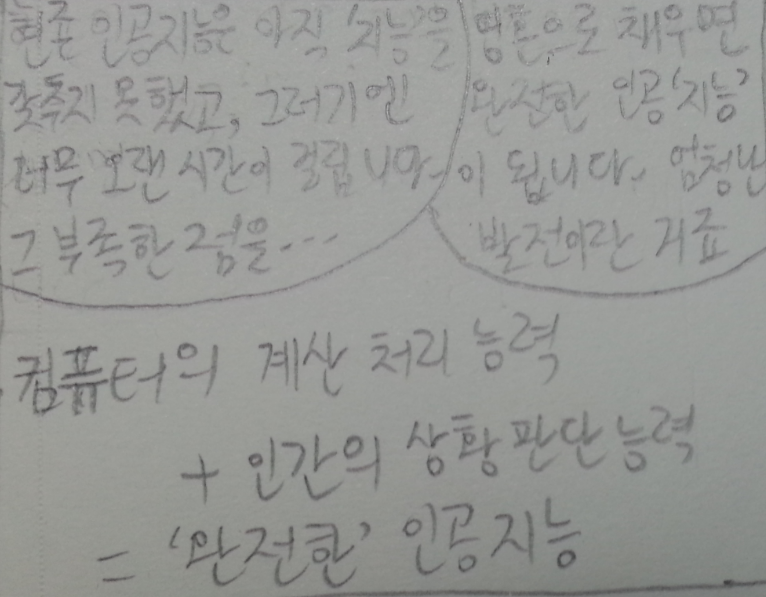 현존 인공지능은 아직 '지능'을
갖추지 못했고, 그러기엔
너무 오랜 시간이 걸립니다.
그 부족한 점을...
영혼으로 채우면
완전한 인공'지능'
이 됩니다. 엄청난
발전이란 거죠
컴퓨터의 계산 처리 능력
+ 인간의 상황판단능력
= '완전한' 인공지능